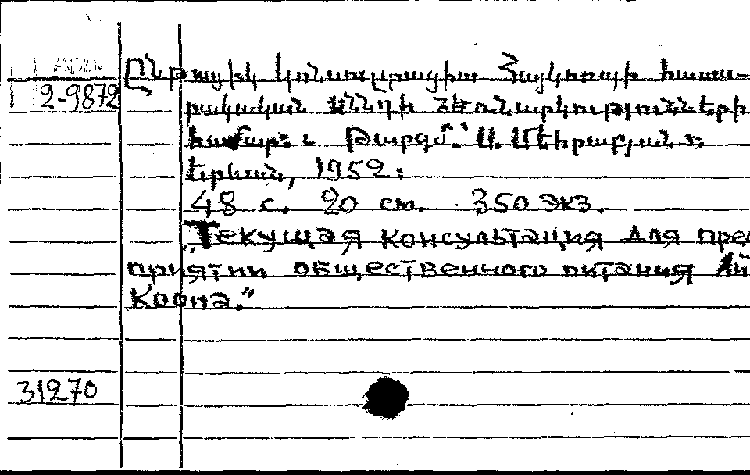 Ընթացիկ կոնսուլտացիա Հայկոոպի հասա-
2-9872
րակական սննդի ձեռնարկությունների
համար: Թարգմ.՝ Ա. Մեիրաբյան:
Երևան, 1952:
48 с. 20 см. 350 экз.
Текущая консультация для пред
приятий общественного питания Ай
коопа."
31270